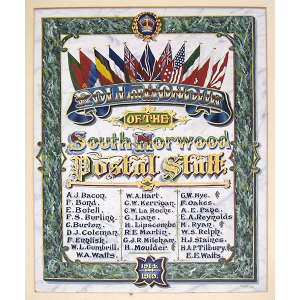 ROLL OF HONOUR
OF THE
South Norwood
Postal Staff
A.J. Bacon.
F. Bond.
E. Botell.
F.S. Burling.
G. Burton.
D.J. Coleman.
F. English.
W.L. Gumbrill.
W.A. Watts.
W.A. Hart.
G.W. Kerrigan.
C.W. La Roche.
G. Lane.
H. Lipscombe.
R.E. Martin.
G.J.R. Milcham.
H. Moulder.
G.W. Nye.
F. Oakes.
A.E. Page.
E.A. Reynolds
M. Ryan.
W.S. Relph.
H.J. Staines.
H.A.P. Tilbury.
E.E. Watts.
1914
1919.